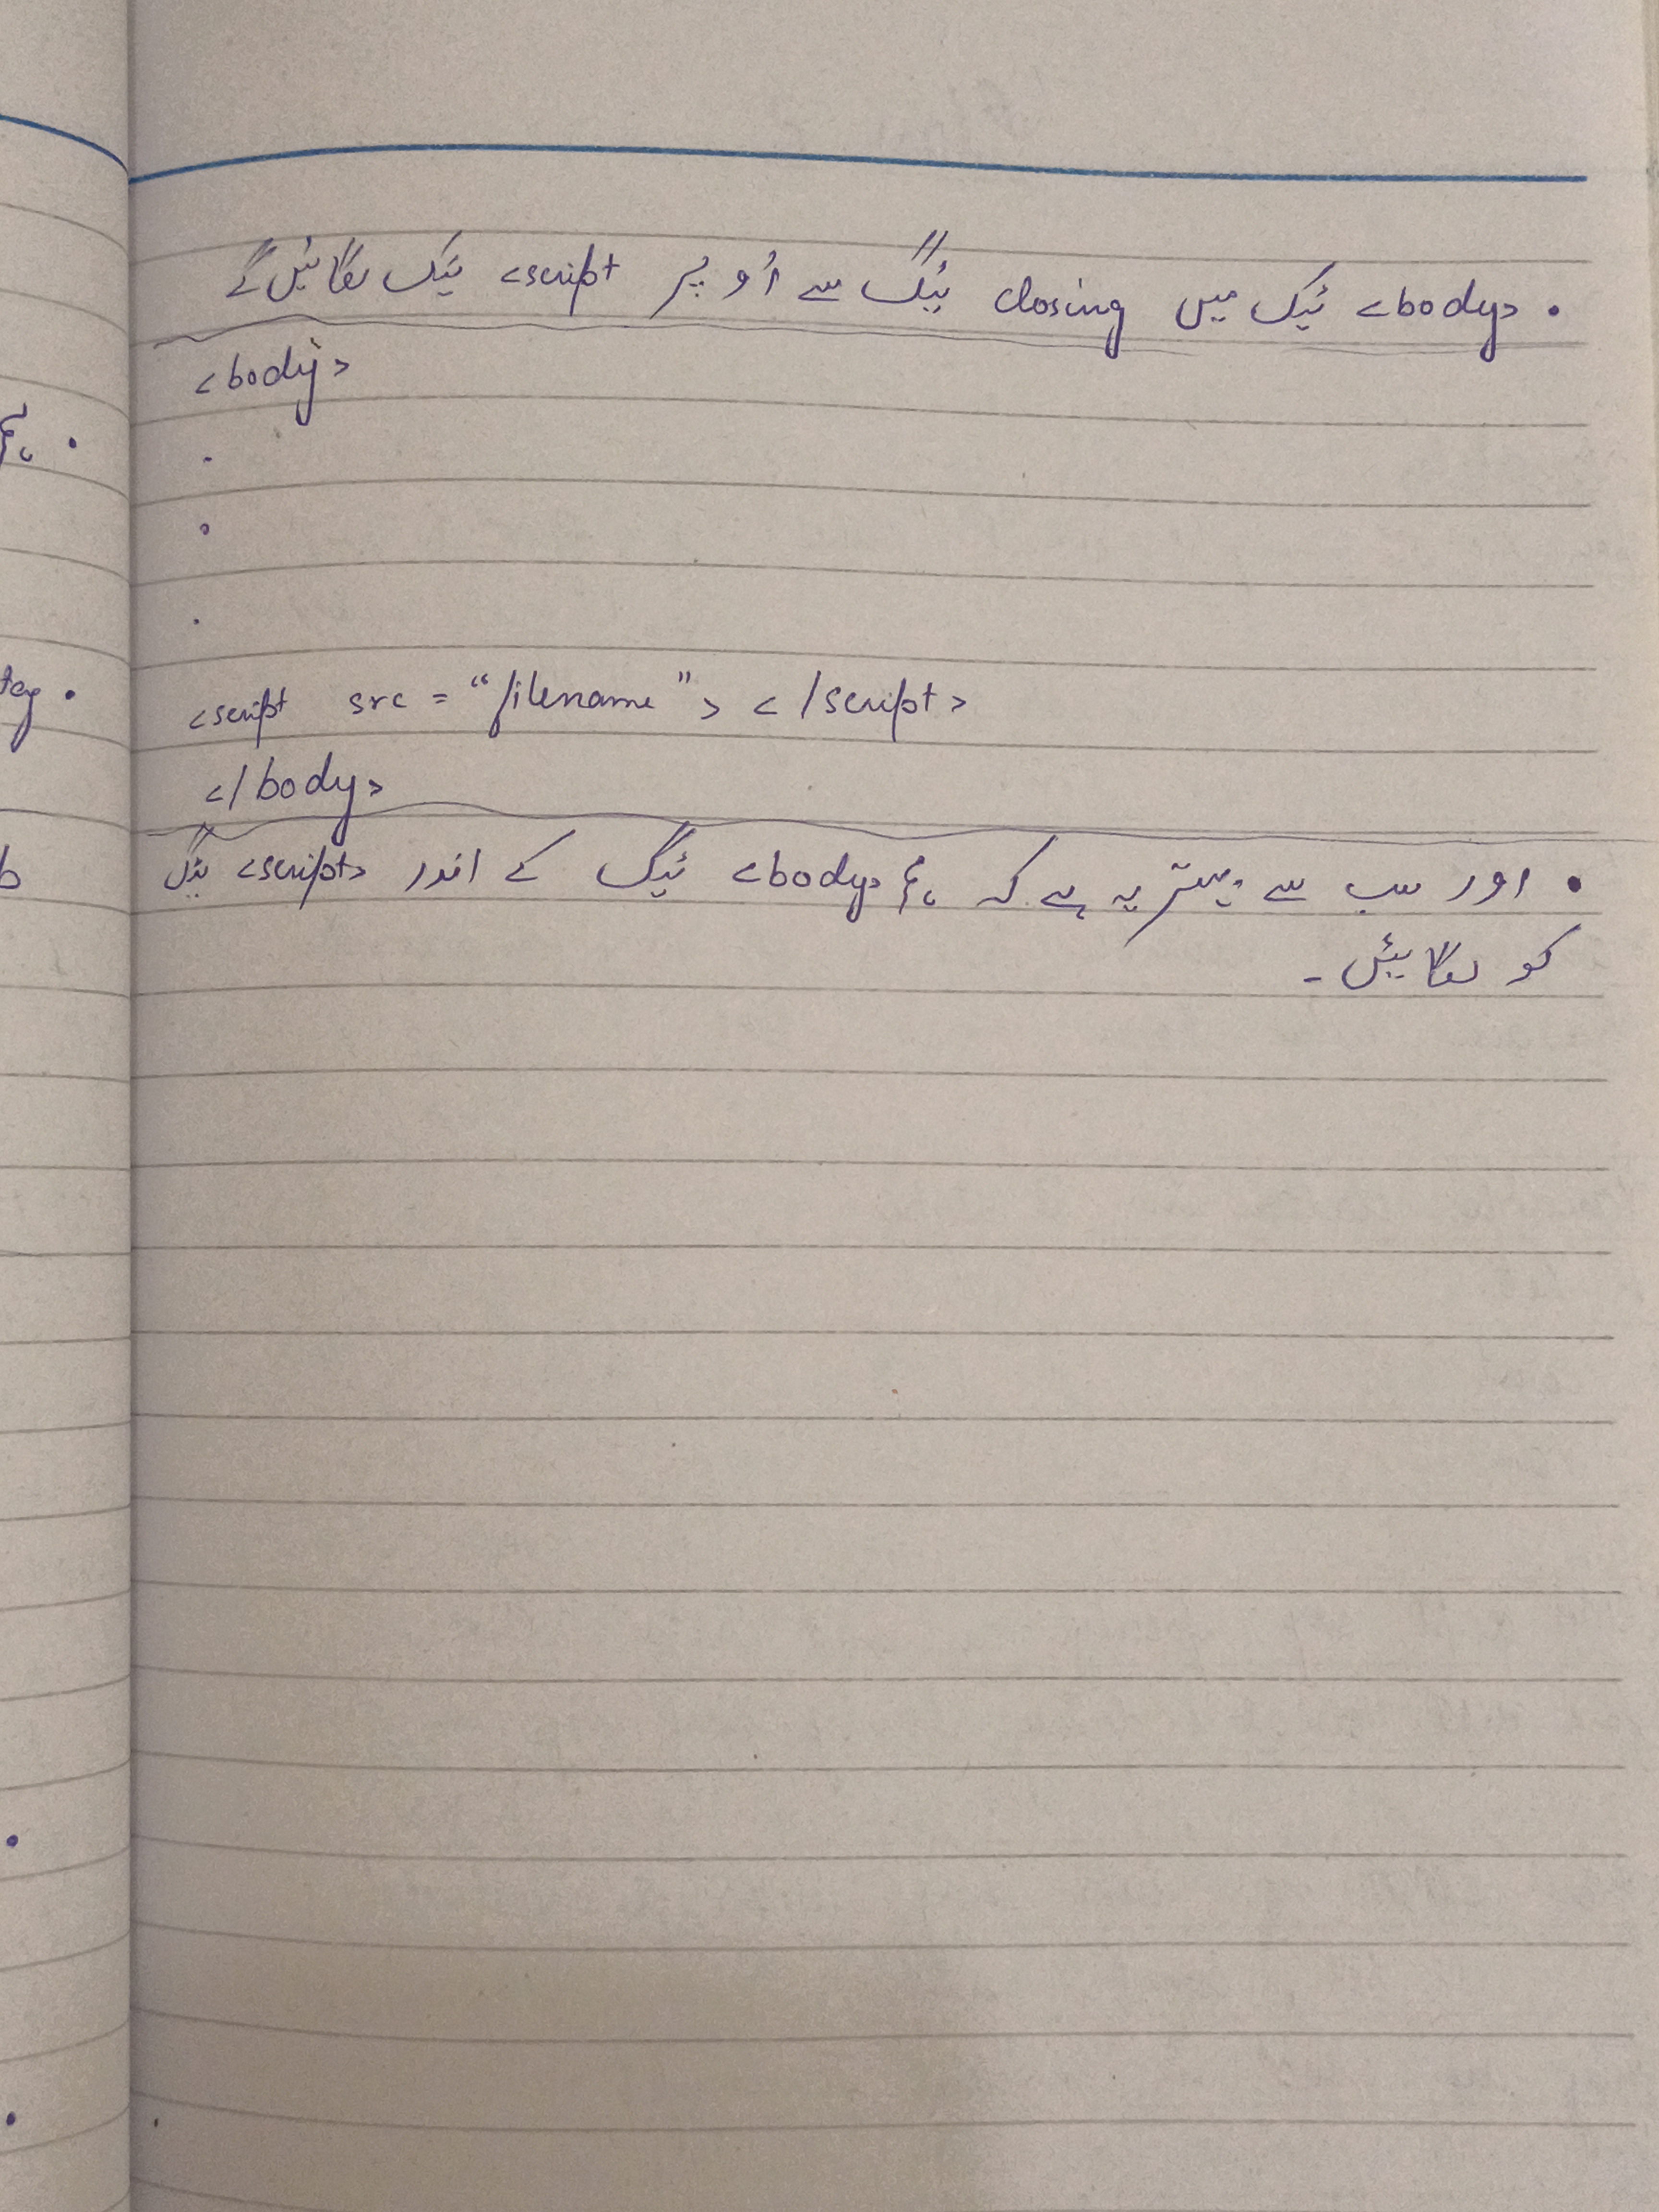 • <body> ٹیگ میں closing ٹیگ سے اُوپر <script ٹیگ لگائیں گے
<body>
.
.
.
<script src = "filename"> </script>
</body>
• اور سب سے بہتر یہ ہے کہ ہم <body> ٹیگ کے اندر <script> ٹیگ
کو لگائیں۔